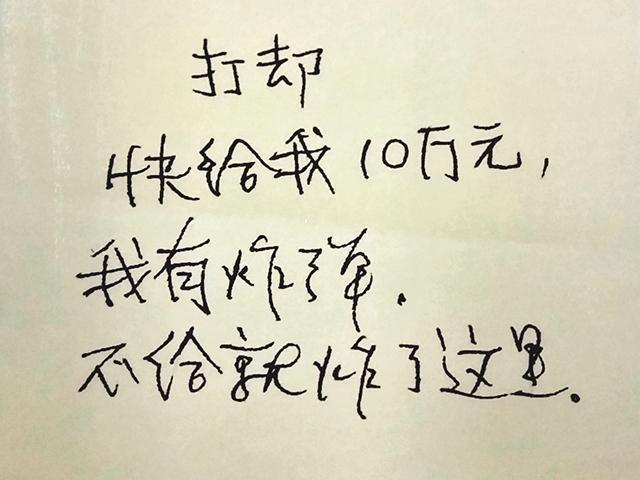 打却
快给我10万元，
我有炸弹．
不给就炸了这里。